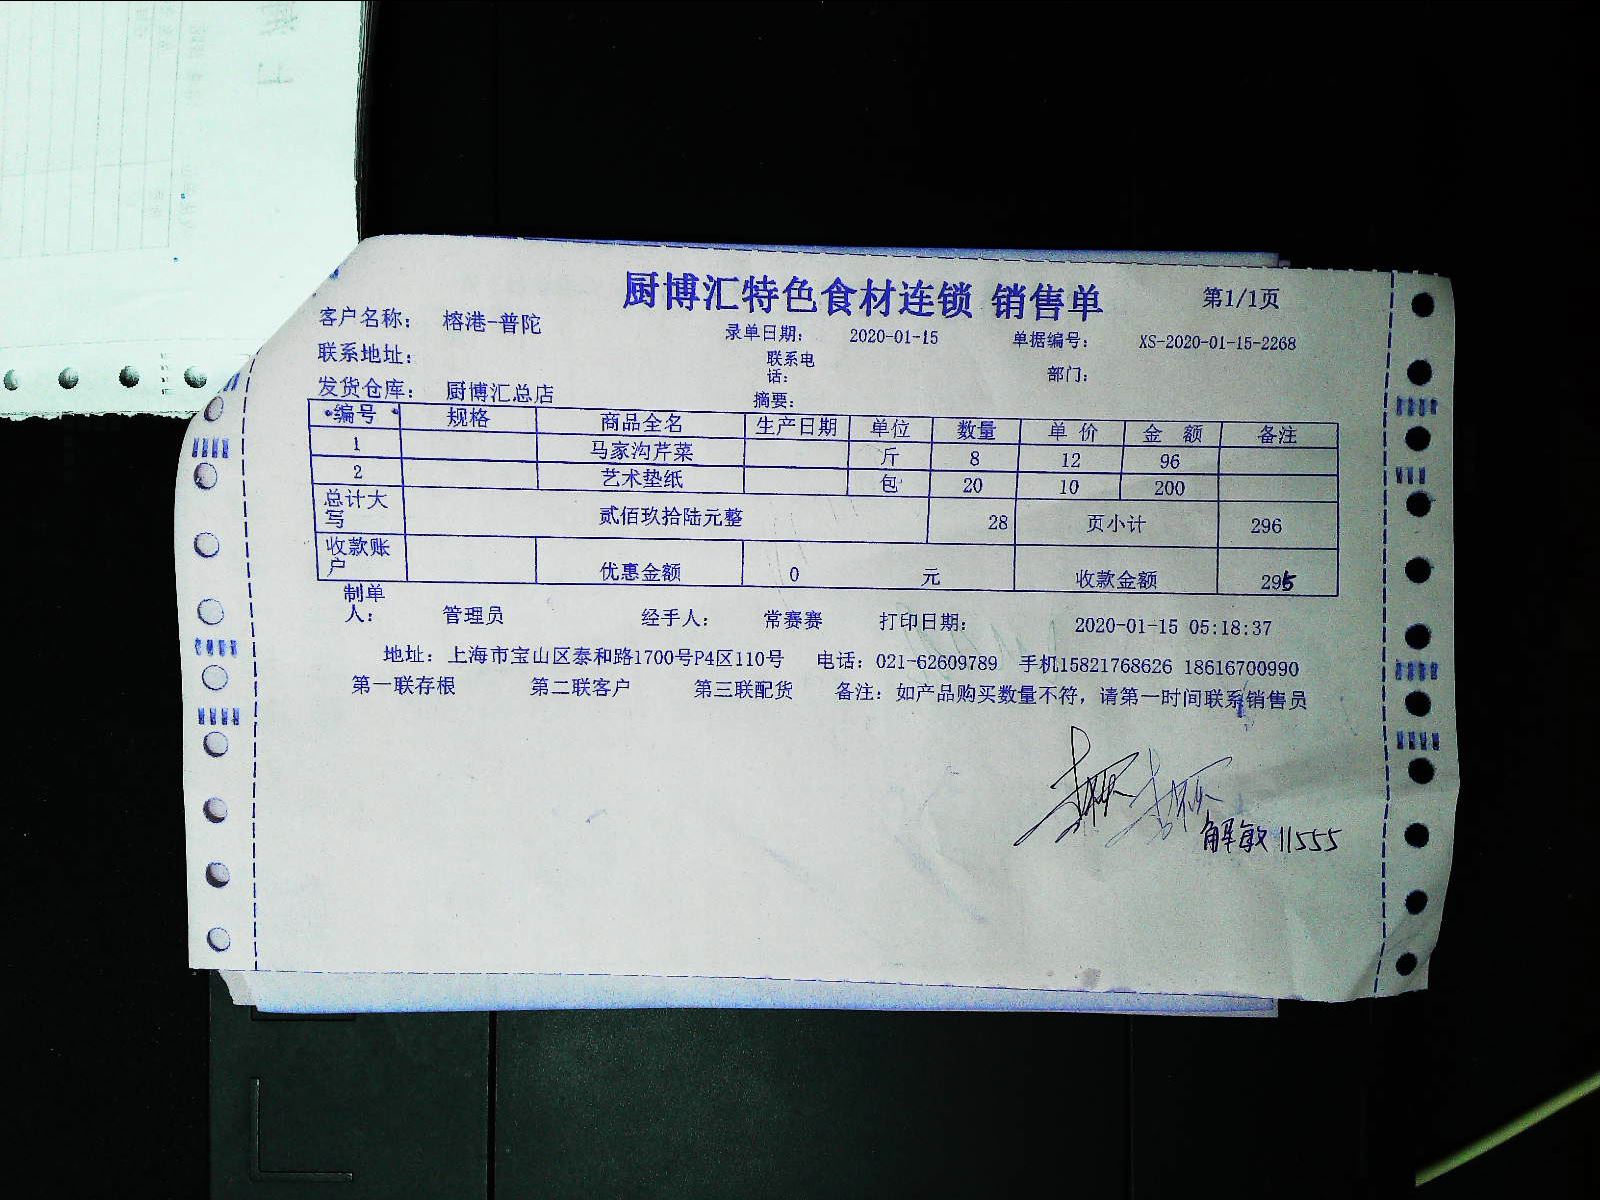 厨博汇特色食材连锁 销售单 第1/1页
客户名称： 榕港-普陀 录单日期： 2020-01-15 单据编号： XS-2020-01-15-2268
联系地址： 联系电话： 部门：
发货仓库： 厨博汇总店 摘要：
编号 规格 商品全名 生产日期 单位 数量 单 价 金 额 备注
1 马家沟芹菜 斤 8 12 96
2 艺术垫纸 包 20 10 200
总计大写 贰佰玖拾陆元整 28 页小计 296
收款账户 优惠金额 0 元 收款金额 295
制单人： 管理员 经手人： 常赛赛 打印日期： 2020-01-15 05:18:37
地址：上海市宝山区泰和路1700号P4区110号 电话：021-62609789 手机15821768626 18616700990
第一联存根 第二联客户 第三联配货 备注：如产品购买数量不符，请第一时间联系销售员
解敏 11555